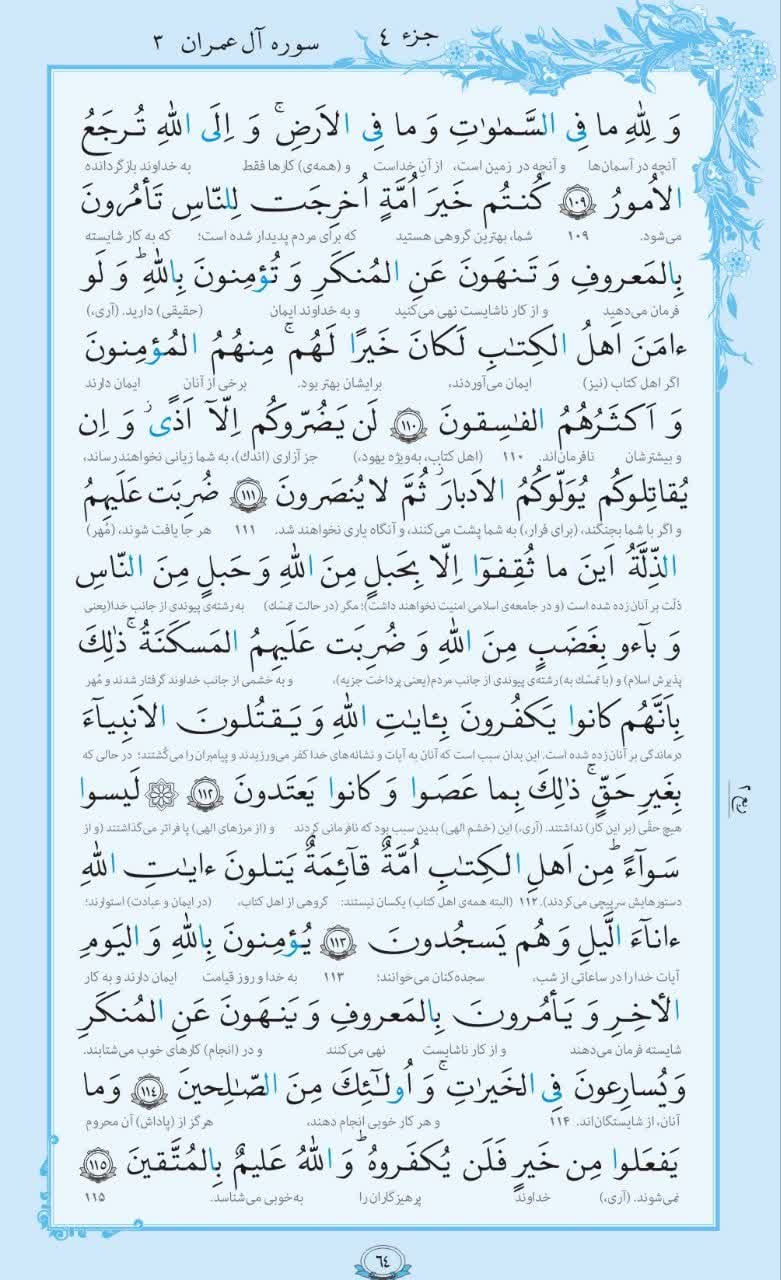 جزء ٤
سوره آل عمران ٣
وَ لِلّٰهِ ما فِی السَّمٰوٰتِ وَ ما فِی الاَرضِ ۚ وَ اِلَی اللّٰهِ تُرجَعُ
آنچه در آسمان‌ها و آنچه در زمین است، از آنِ خداست و (همه‌ی) کارها فقط به خداوند بازگردانده
الاُمورُ ﴿١٠٩﴾ کُنتُم خَیرَ اُمَّةٍ اُخرِجَت لِلنّاسِ تَأمُرونَ
می‌شود. ١٠٩ شما، بهترین گروهی هستید که برای مردم پدیدار شده است؛ که به کار شایسته
بِالمَعروفِ وَ تَنهَونَ عَنِ المُنکَرِ وَ تُؤمِنونَ بِاللّٰهِ ۗ وَ لَو
فرمان می‌دهید و از کار ناشایست نهی می‌کنید و به خداوند ایمان (حقیقی) دارید. (آری،)
ءامَنَ اَهلُ الکِتٰبِ لَکانَ خَیرًا لَهُم ۚ مِنهُمُ المُؤمِنونَ
اگر اهل کتاب (نیز) ایمان می‌آوردند، برایشان بهتر بود. برخی از آنان ایمان دارند
وَ اَکثَرُهُمُ الفٰسِقونَ ﴿١١٠﴾ لَن یَضُرّوکُم اِلّآ اَذًی ۖ وَ اِن
و بیشترشان نافرمان‌اند. ١١٠ (اهل کتاب، به‌ویژه یهود،) جز آزاری (اندك)، به شما زیانی نخواهند رساند،
یُقاتِلوکُم یُوَلّوکُمُ الاَدبارَ ثُمَّ لا یُنصَرونَ ﴿١١١﴾ ضُرِبَت عَلَیهِمُ
و اگر با شما بجنگند، (برای فرار،) به شما پشت می‌کنند، و آنگاه یاری نخواهند شد. ١١١ هر جا یافت شوند، (مُهر)
الذِّلَّةُ اَینَ ما ثُقِفوٓا اِلّا بِحَبلٍ مِنَ اللّٰهِ وَ حَبلٍ مِنَ النّاسِ
ذلّت بر آنان زده شده است (و در جامعه‌ی اسلامی امنیت نخواهند داشت)؛ مگر (در حالت تمسّك) به رشته‌ی پیوندی از جانب خدا(یعنی
وَ بآءو بِغَضَبٍ مِنَ اللّٰهِ وَ ضُرِبَت عَلَیهِمُ المَسکَنَةُ ۚ ذٰلِكَ
پذیرش اسلام) و (با تمسّك به) رشته‌ی پیوندی از جانب مردم(یعنی پرداخت جزیه)، و به خشمی از جانب خداوند گرفتار شدند و مُهر
بِاَنَّهُم کانوا یَکفُرونَ بِـٔایٰتِ اللّٰهِ وَ یَقتُلونَ الاَنبِیآءَ
درماندگی بر آنان زده شده است. این بدان سبب است که آنان به آیات و نشانه‌های خدا کفر می‌ورزیدند و پیامبران را می‌کُشتند؛ در حالی که
بِغَیرِ حَقٍّ ۚ ذٰلِكَ بِما عَصَوا وَ کانوا یَعتَدونَ ﴿١١٢﴾ ۞ لَیسوا
هیچ حقّی (بر این کار) نداشتند. (آری،) این (خشم الهی) بدین سبب بود که نافرمانی کردند و (از مرزهای الهی) پا فراتر می‌گذاشتند (و از
سَوآءً ۗ مِن اَهلِ الکِتٰبِ اُمَّةٌ قآئِمَةٌ یَتلونَ ءایٰتِ اللّٰهِ
دستورهایش سرپیچی می‌کردند). ١١٢ (البته همه‌ی اهل کتاب) یکسان نیستند: گروهی از اهل کتاب، (در ایمان و عبادت) استوارند؛
ءانآءَ الَّیلِ وَ هُم یَسجُدونَ ﴿١١٣﴾ یُؤمِنونَ بِاللّٰهِ وَ الیَومِ
آیات خدا را در ساعاتی از شب، سجده‌کنان می‌خوانند؛ ١١٣ به خدا و روز قیامت ایمان دارند و به کار
الأخِرِ وَ یَأمُرونَ بِالمَعروفِ وَ یَنهَونَ عَنِ المُنکَرِ
شایسته فرمان می‌دهند و از کار ناشایست نهی می‌کنند و در (انجام) کارهای خوب می‌شتابند.
وَ یُسارِعونَ فِی الخَیراتِ ۚ وَ اُولٰٓئِكَ مِنَ الصّٰلِحینَ ﴿١١٤﴾ وَ ما
آنان، از شایستگان‌اند. ١١۴ و هر کار خوبی انجام دهند، هرگز از (پاداش) آن محروم
یَفعَلوا مِن خَیرٍ فَلَن یُکفَروهُ ۗ وَ اللّٰهُ عَلیمٌ بِالمُتَّقینَ ﴿١١٥﴾
نمی‌شوند. (آری،) خداوند پرهیزکاران را به‌خوبی می‌شناسد. ١١۵
ربع ٢
٦٤